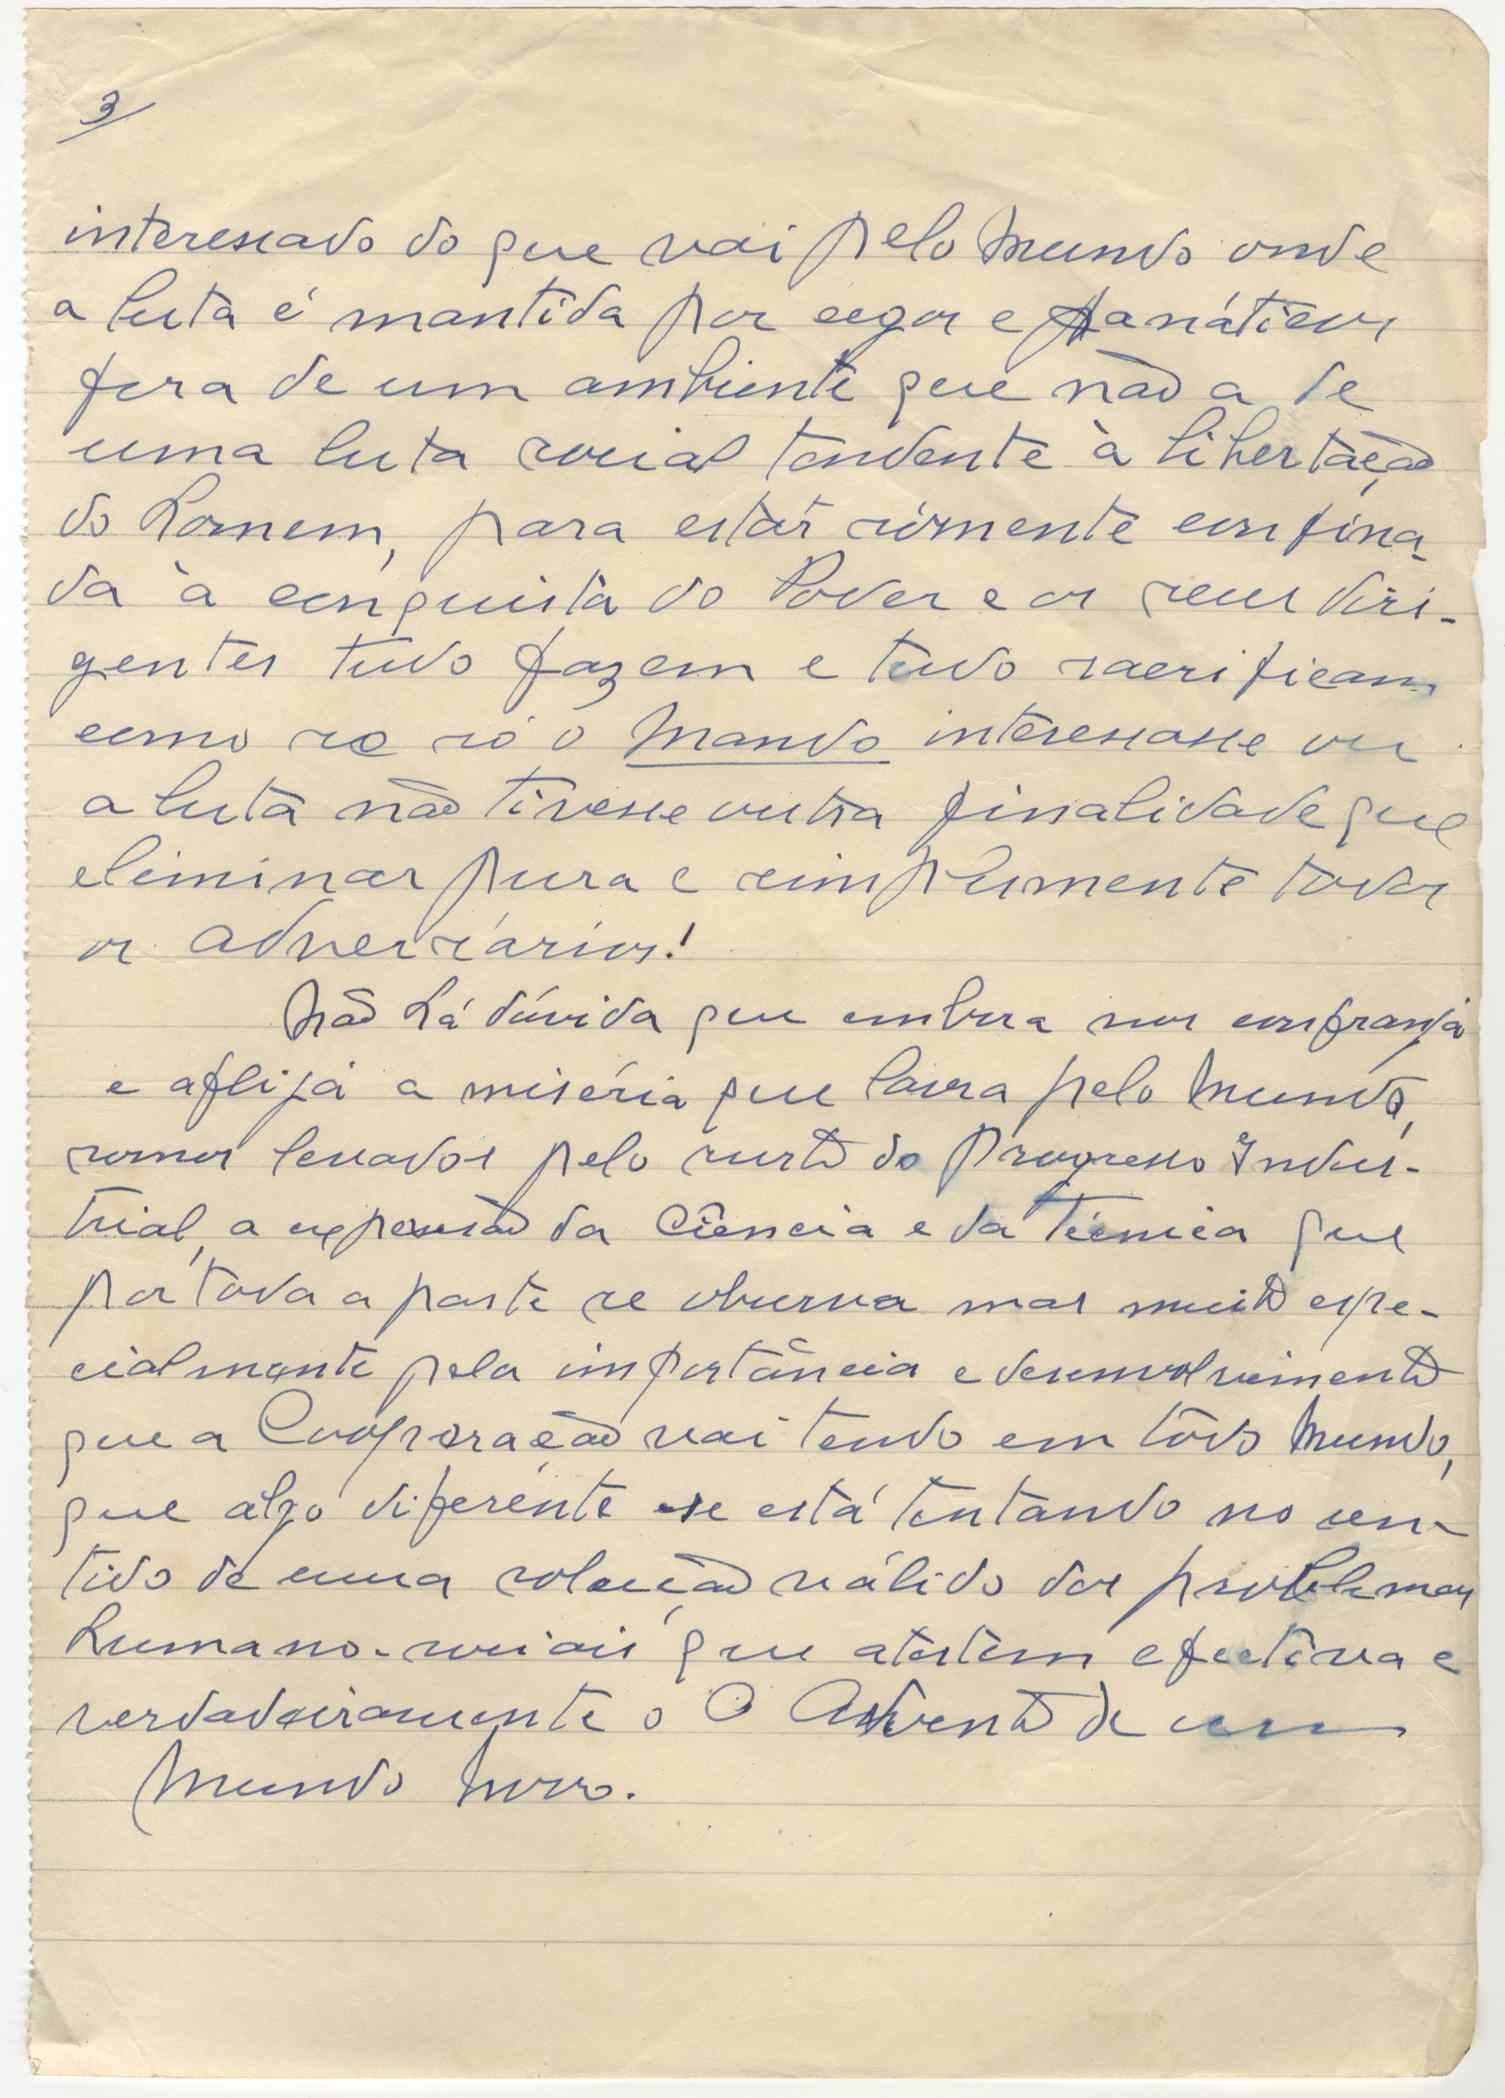 3
interessado do que vai pelo Mundo onde
a luta é mantida por cegos e fanáticos
fora de um ambiente que não a de
uma luta social tendente à libertação
do homem, para estar sómente confina-
da à conquista do Poder e os seus diri-
gentes tudo fazem e tudo sacrificam
como se só o Mando interessasse ou
a luta não tivesse outra finalidade que
eliminar pura e simplesmente todos
os adversários!
Não há dúvida que embora nos confranja
e aflija a miséria que lavra pelo Mundo,
somos levados pelo surto do Progresso Indus-
trial, a expansão da Ciência e da Técnica que
por toda a parte se observa mas muito espe-
cialmente pela importância e desenvolvimento
que a Cooperação vai tendo em todo Mundo,
que algo diferente se está tentando no sen-
tido de uma solução válido dos problemas
humano-sociais que atestem efectiva e
verdadeiramente o O Advento de um
Mundo Novo.